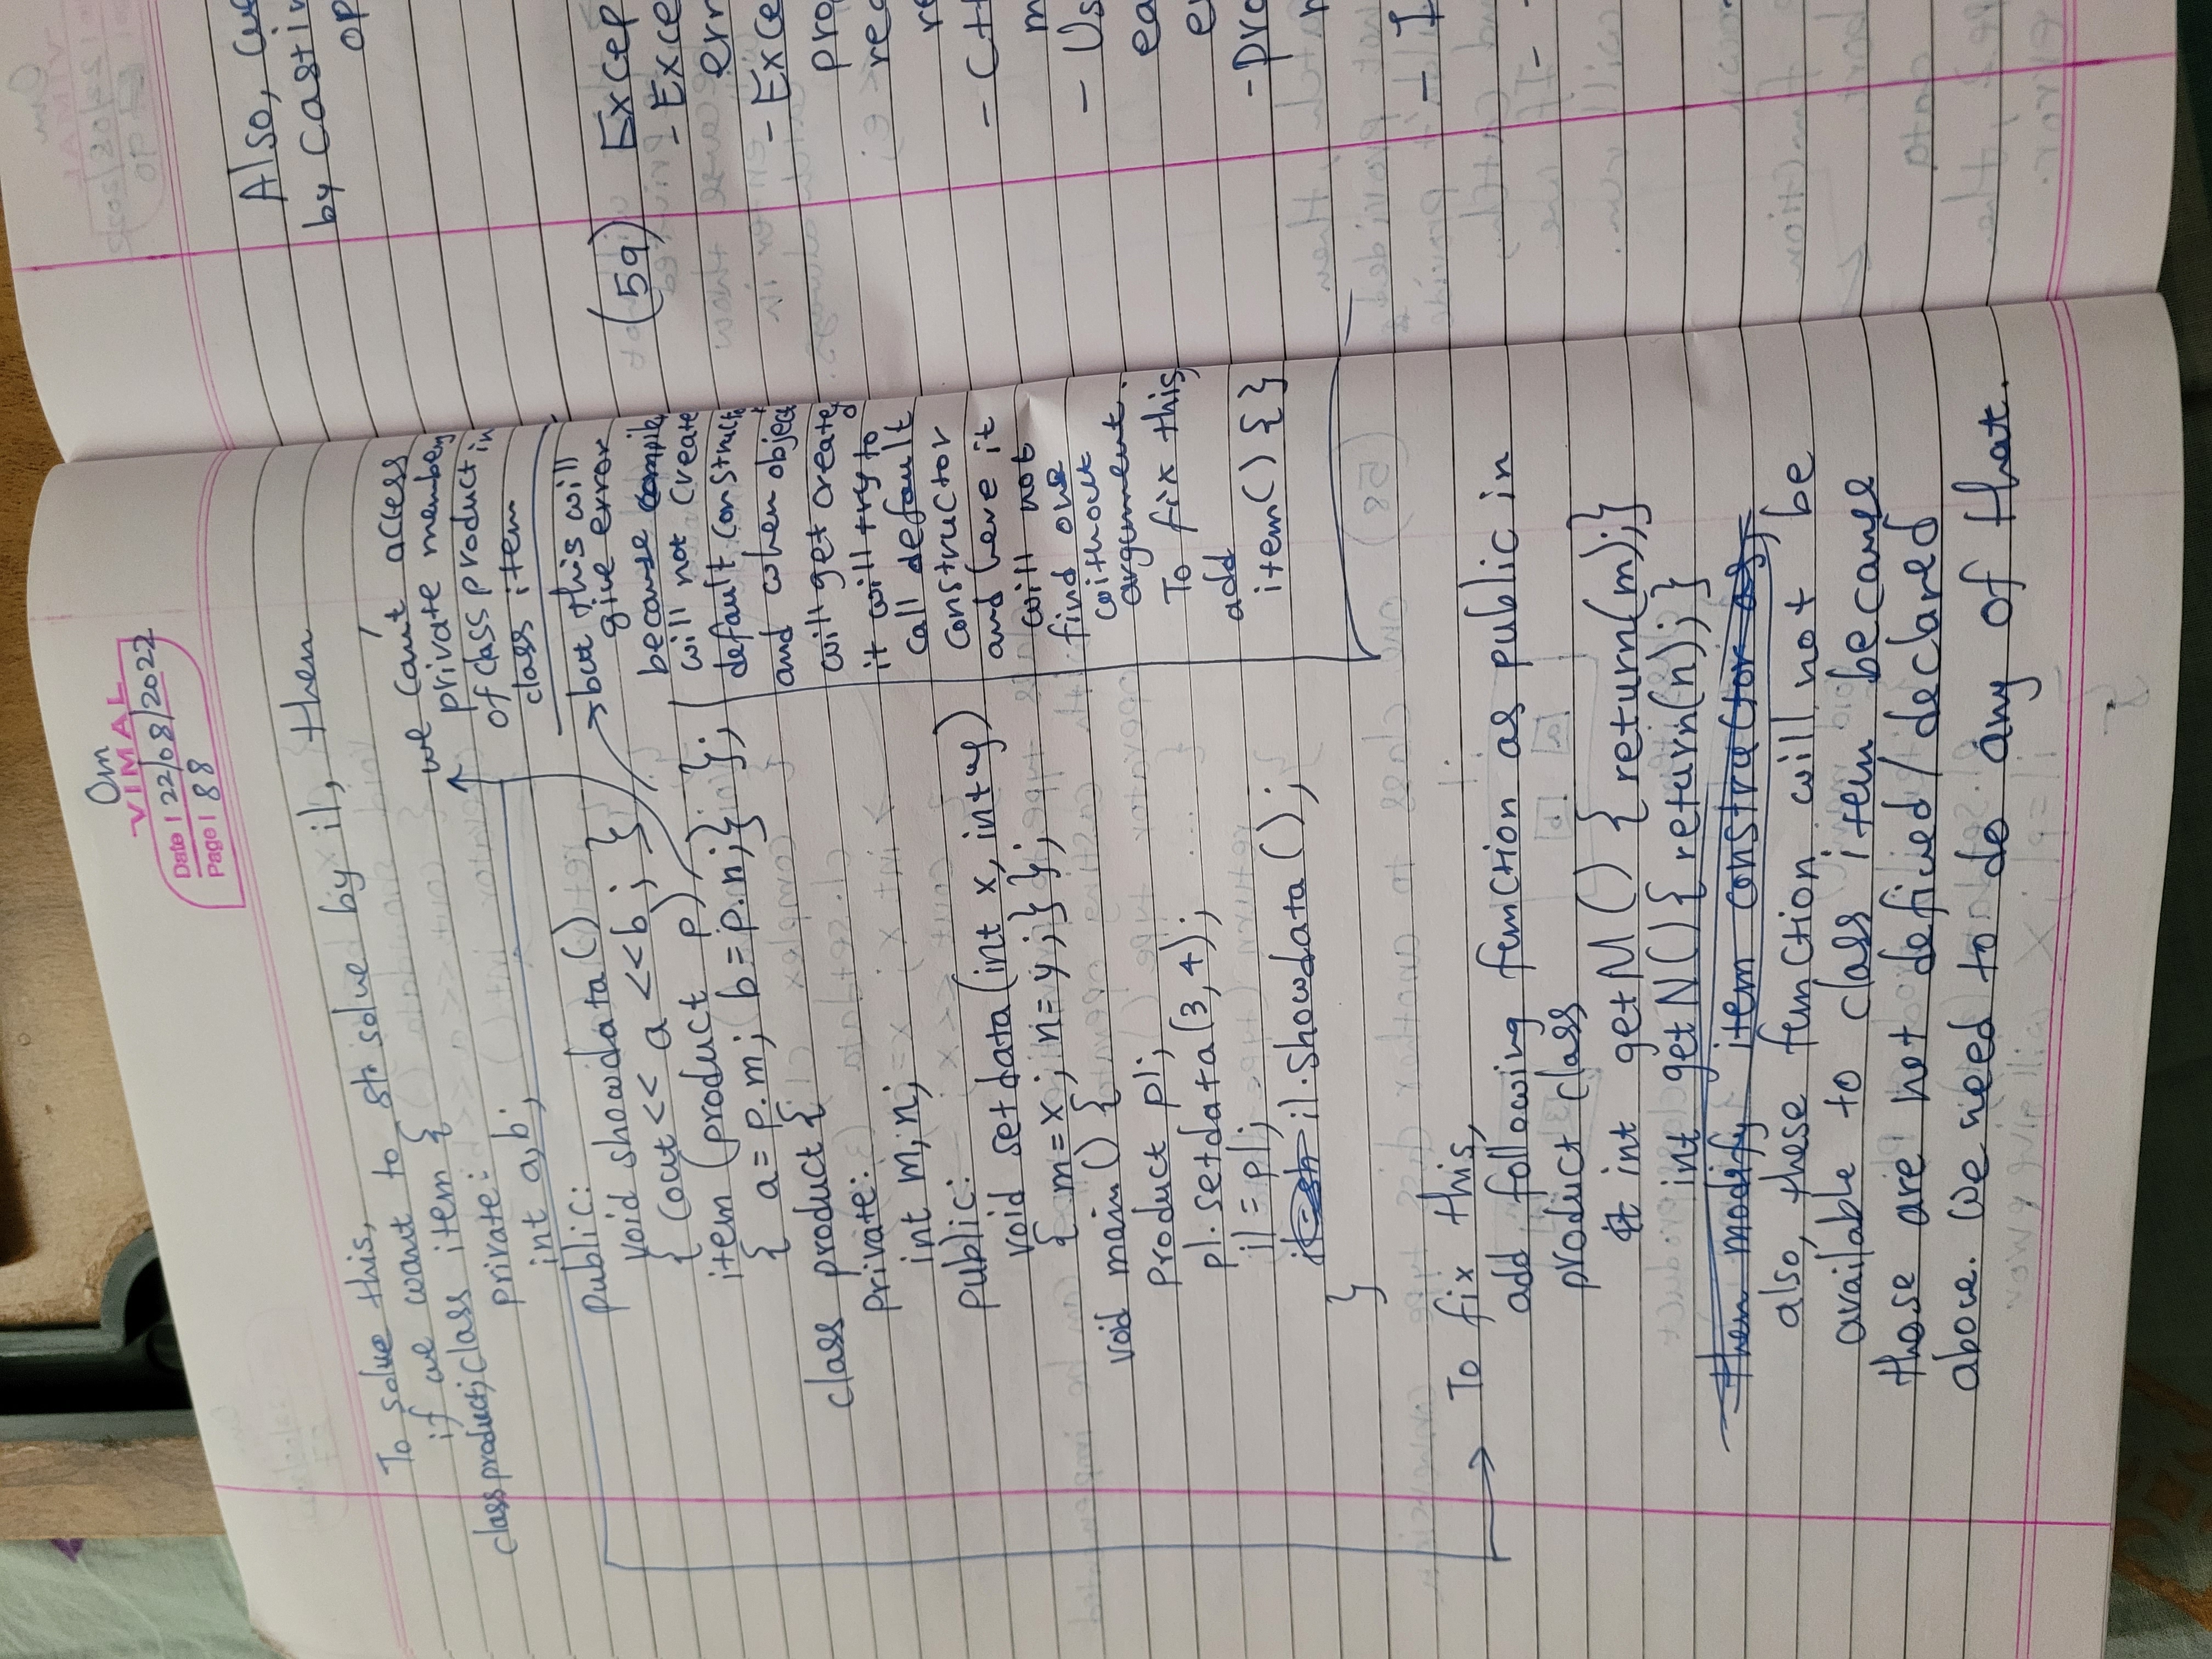 Om
VIMAL
Date | 22/08/2022
Page | 88
To solve this,
if we want to solve by i1, then
class product; class item {
private:
int a,b;
public:
void showdata ()
{ cout << a <<b; }
item (product p)
{ a = p.m; b = p.n; } };
class product {
private:
int m, n;
public:
void setdata (int x, int y)
{ m = x; n = y; } };
void main () {
product p1;
p1.setdata (3, 4);
i1 = p1;
i1.showdata ();
}
we can't access
private member
of class product in
class item
but this will
give error
because compile
will not create
default construct
and when object
will get created
it will try to
call default
constructor
and here it
will not
find one
without
argument.
To fix this,
add
item () { }
To fix this,
add following function as public in
product class
int getM () { return(m); }
int getN () { return(n); }
then modify item constructor as,
also, these function will not be
available to class item because
those are not defined/declared
above. We need to do any of that.
Also,
by Casti
op
(59) Excep
- Exce
err
- Exce
pro
rec
re
- C++
m
- Us
ea
e
- pro
- I